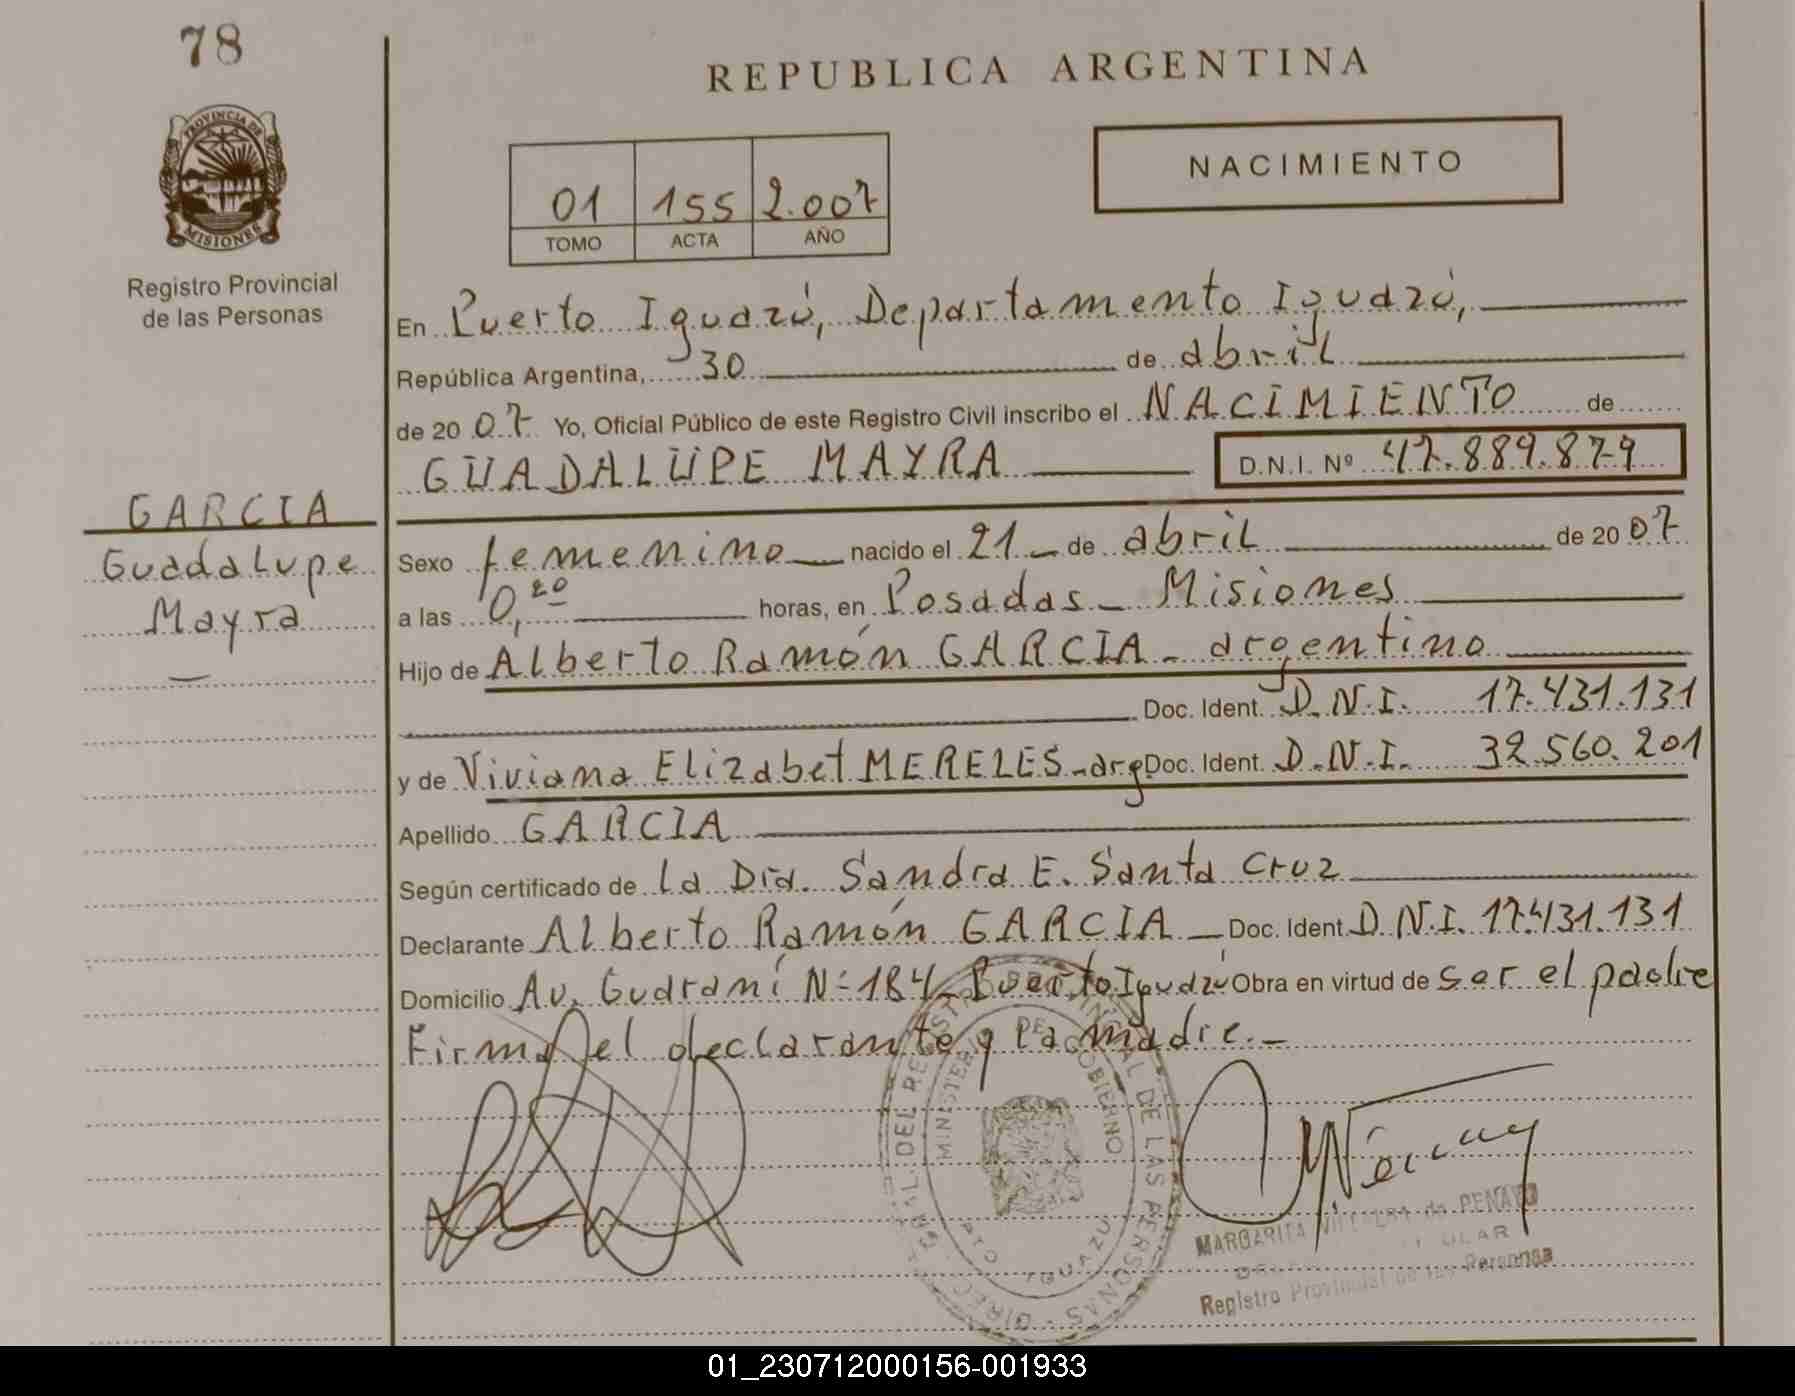 78
REPUBLICA ARGENTINA
PROVINCIA DE
MISIONES
NACIMIENTO
01 155 2.007
TOMO ACTA AÑO
Registro Provincial
de las Personas
En Puerto Iguazú, Departamento Iguazú,
República Argentina, 30 de abril
de 20 07 Yo, Oficial Público de este Registro Civil inscribo el NACIMIENTO de
GUADALUPE MAYRA D.N.I. Nº 47.889.879
GARCIA
Guadalupe
Mayra
Sexo femenino nacido el 21 de abril de 20 07
a las 0,20 horas, en Posadas - Misiones
Hijo de Alberto Ramón GARCIA - argentino
Doc. Ident. D.N.I. 17.431.131
y de Viviana Elizabet MERELES - arg Doc. Ident. D.N.I. 32.560.201
Apellido GARCIA
Según certificado de la Dra. Sandra E. Santa Cruz
Declarante Alberto Ramón GARCIA - Doc. Ident. D.N.I. 17.431.131
Domicilio Av. Guaraní Nº 184 - Puerto Iguazú Obra en virtud de ser el padre
Firma el declarante y la madre. -
MINISTERIO DE GOBIERNO
PTO IGUAZU
MARGARITA de PENAYO
Registro Provincial de las Personas
01_230712000156-001933